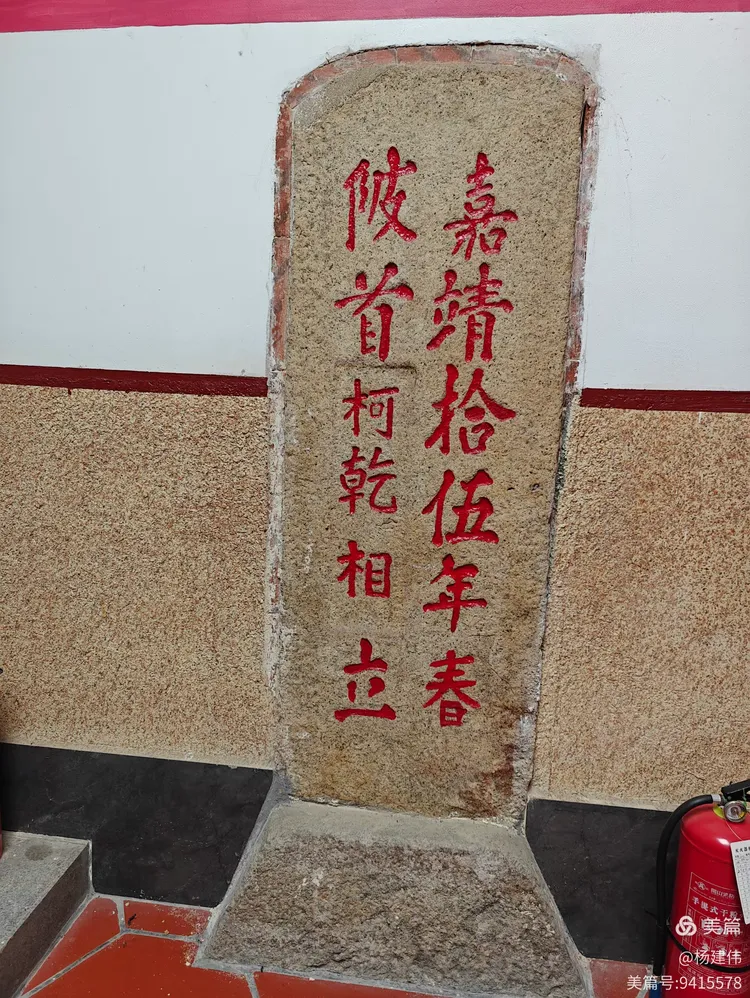 嘉靖拾伍年春
陂首柯乾相立
手提式干粉
美篇
@杨建伟
美篇号:9415578